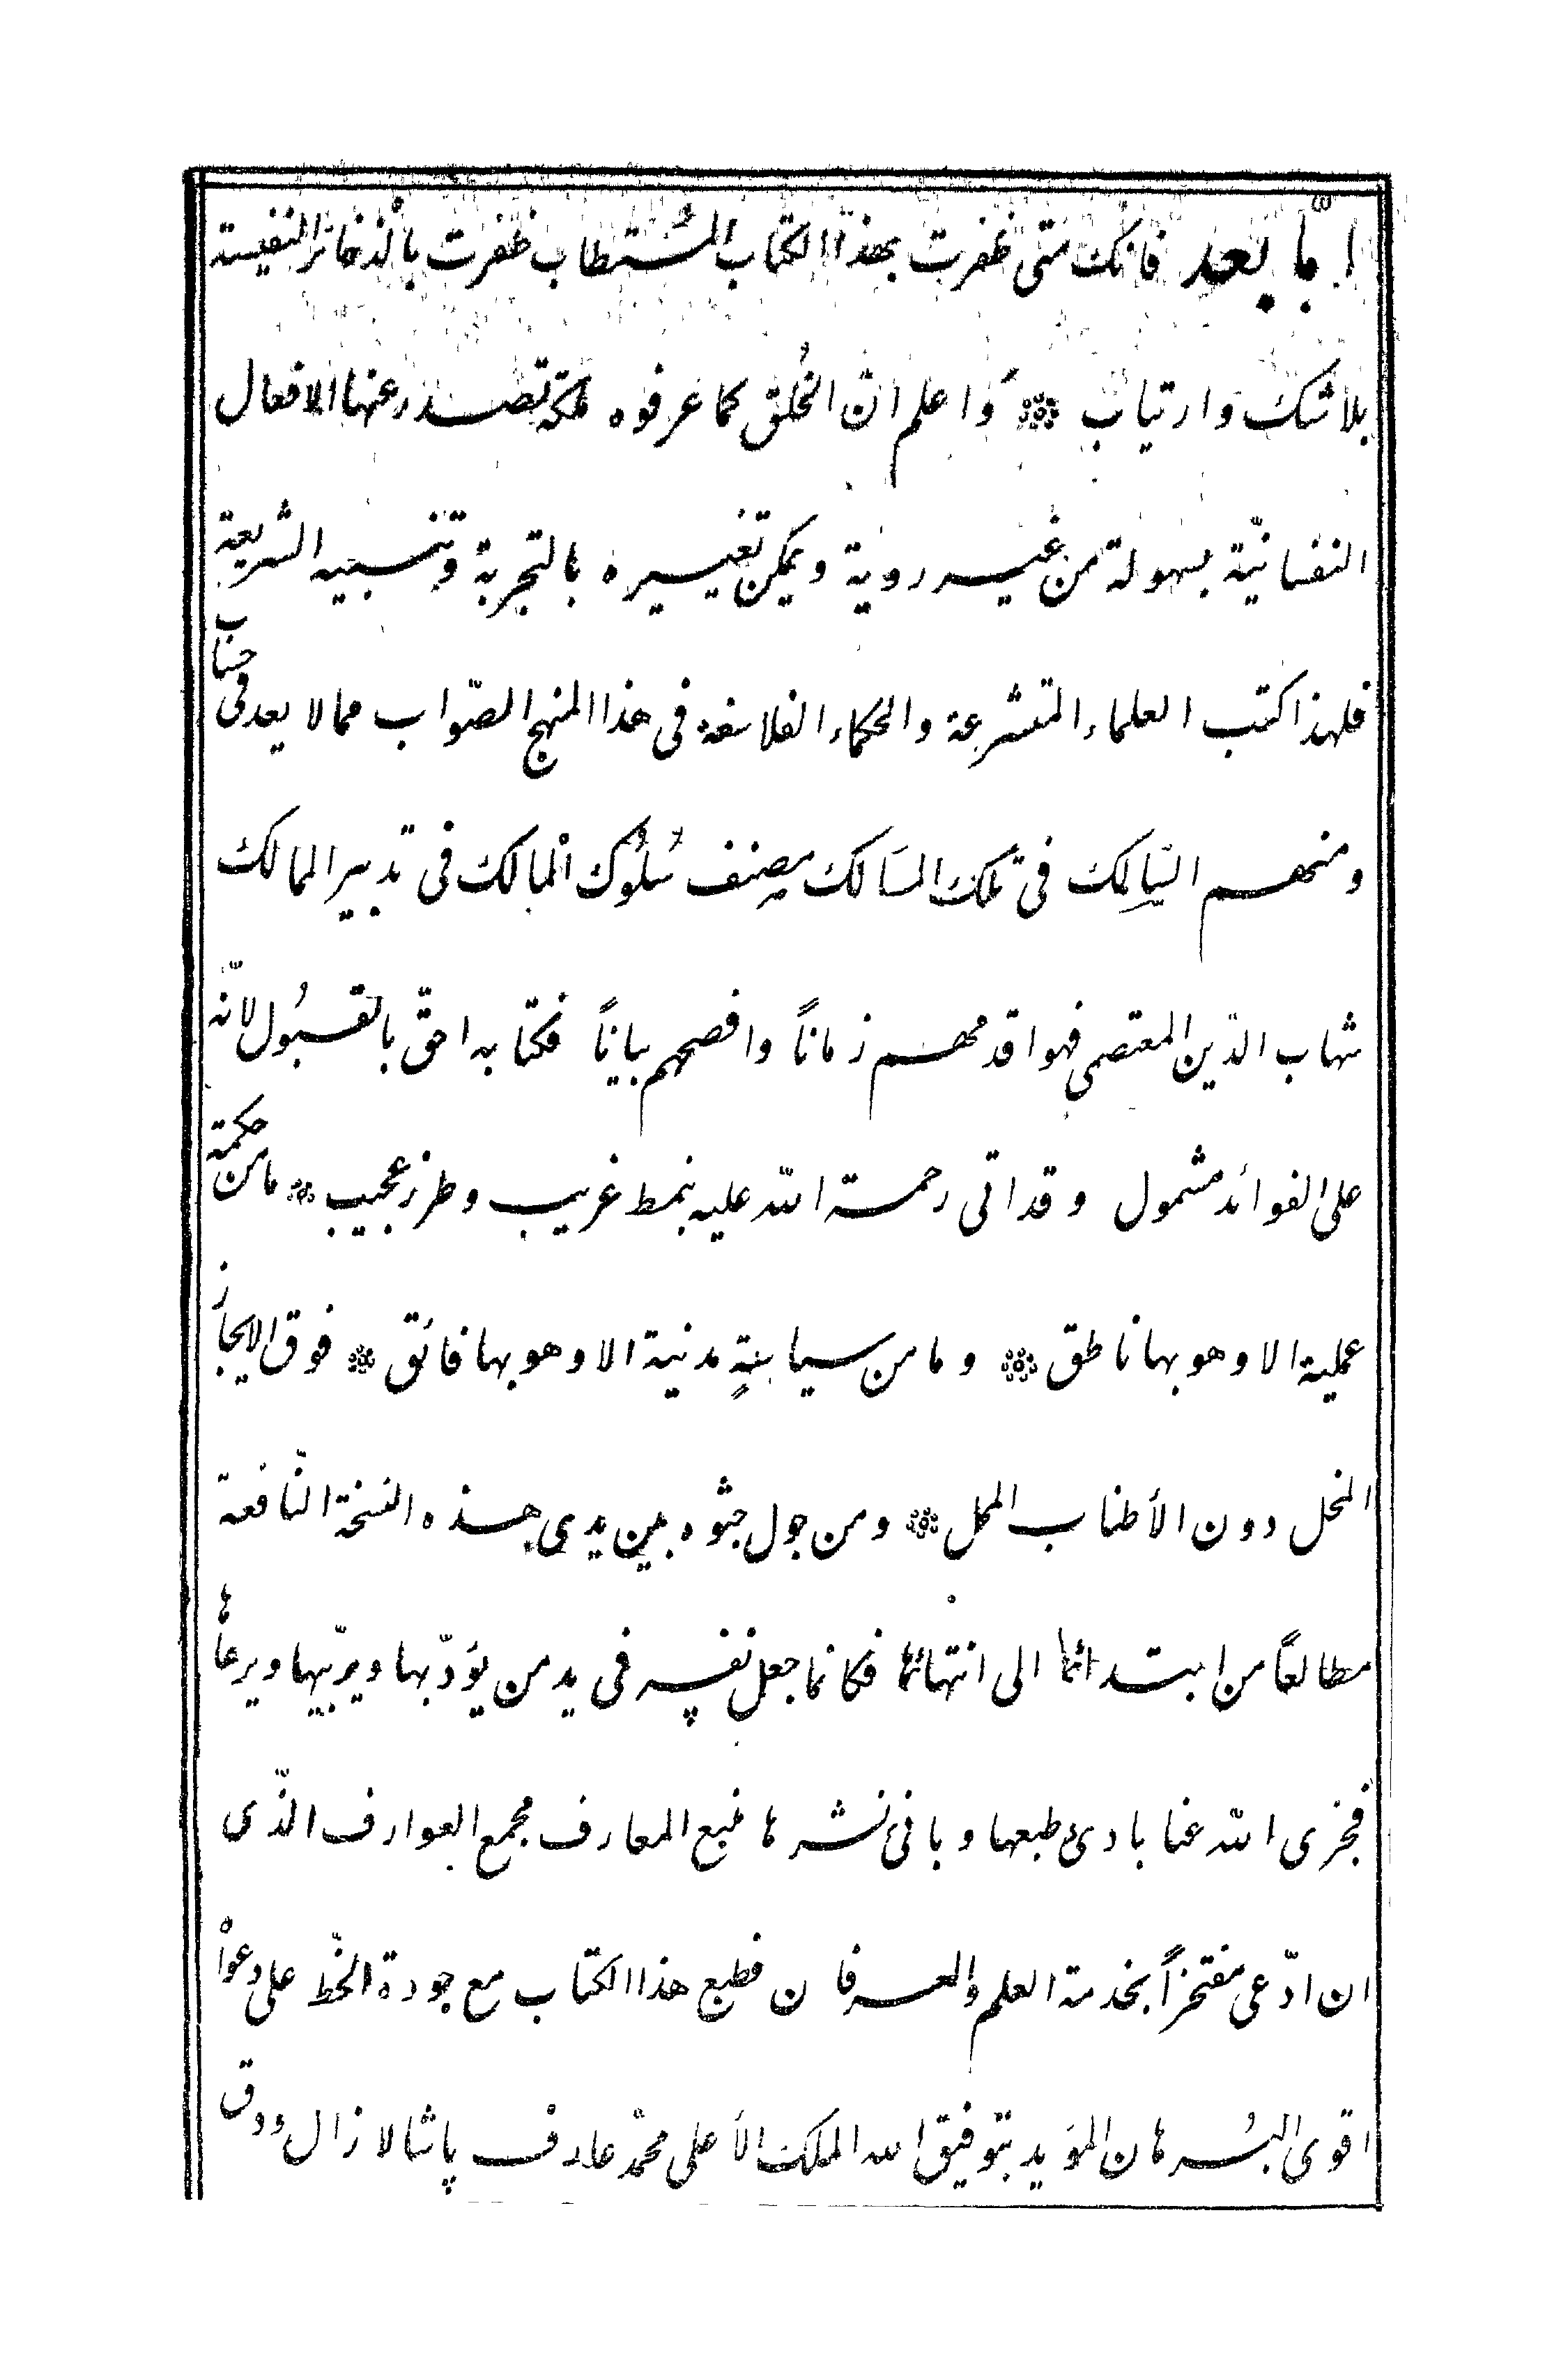 امّا بعد فانك متى ظفرت بهذا الكتاب المُستطاب ظفرت بالذخائر النفيسة
بلا شك وارتياب ۞ وَاعلم انّ الخُلق كما عرفوه ملكة تصدر عنها الافعال
النفسانيّة بسهولة من غير روية ويمكن تغييره بالتجربة وتنبيه الشريعة
فلهذا كتب العلماء المتشرعة والحكماء الفلاسفة فى هذا المنهج الصّواب مما لا يعد فى حساب
ومنهم السّالِك فى تلك المسَالك مصنف سُلُوك المالك فى تدبير الممالك
شهاب الدّين المعتصمى فهو اقدمهم زماناً وافصحهم بياناً فكتابه احقّ بالقبُول لانّه
على الفوائد مشمول وقد اتى رحمة اللّه عليه بنمط غريب وطرز عجيب ۞ ما من حكمة
عملية الا وهو بها ناطق ۞ وما من سياسةٍ مدنية الا وهو بها فائق ۞ فوق الايجاز
المخل دون الأطناب الممل ۞ ومن جول جثوه بين يدى هذه النسخة النّافعة
مطالعاً من ابتدائها الى انتهائها فكانما جعل نفسه فى يد من يؤدّبها ويربّيها ويرعاها
فجزى اللّه عنا بادئ طبعها وبانى نشرها منبع المعارف مجمع العوارف الذّى
ان ادّعى مفتخراً بخدمة العلم والعرفان فطبع هذا الكتاب مع جودة الخّط على دعواه
اقوى البُرهان المؤيد بتوفيق الله الملك الأعلى محمّد عارف پاشا لا زال ودق